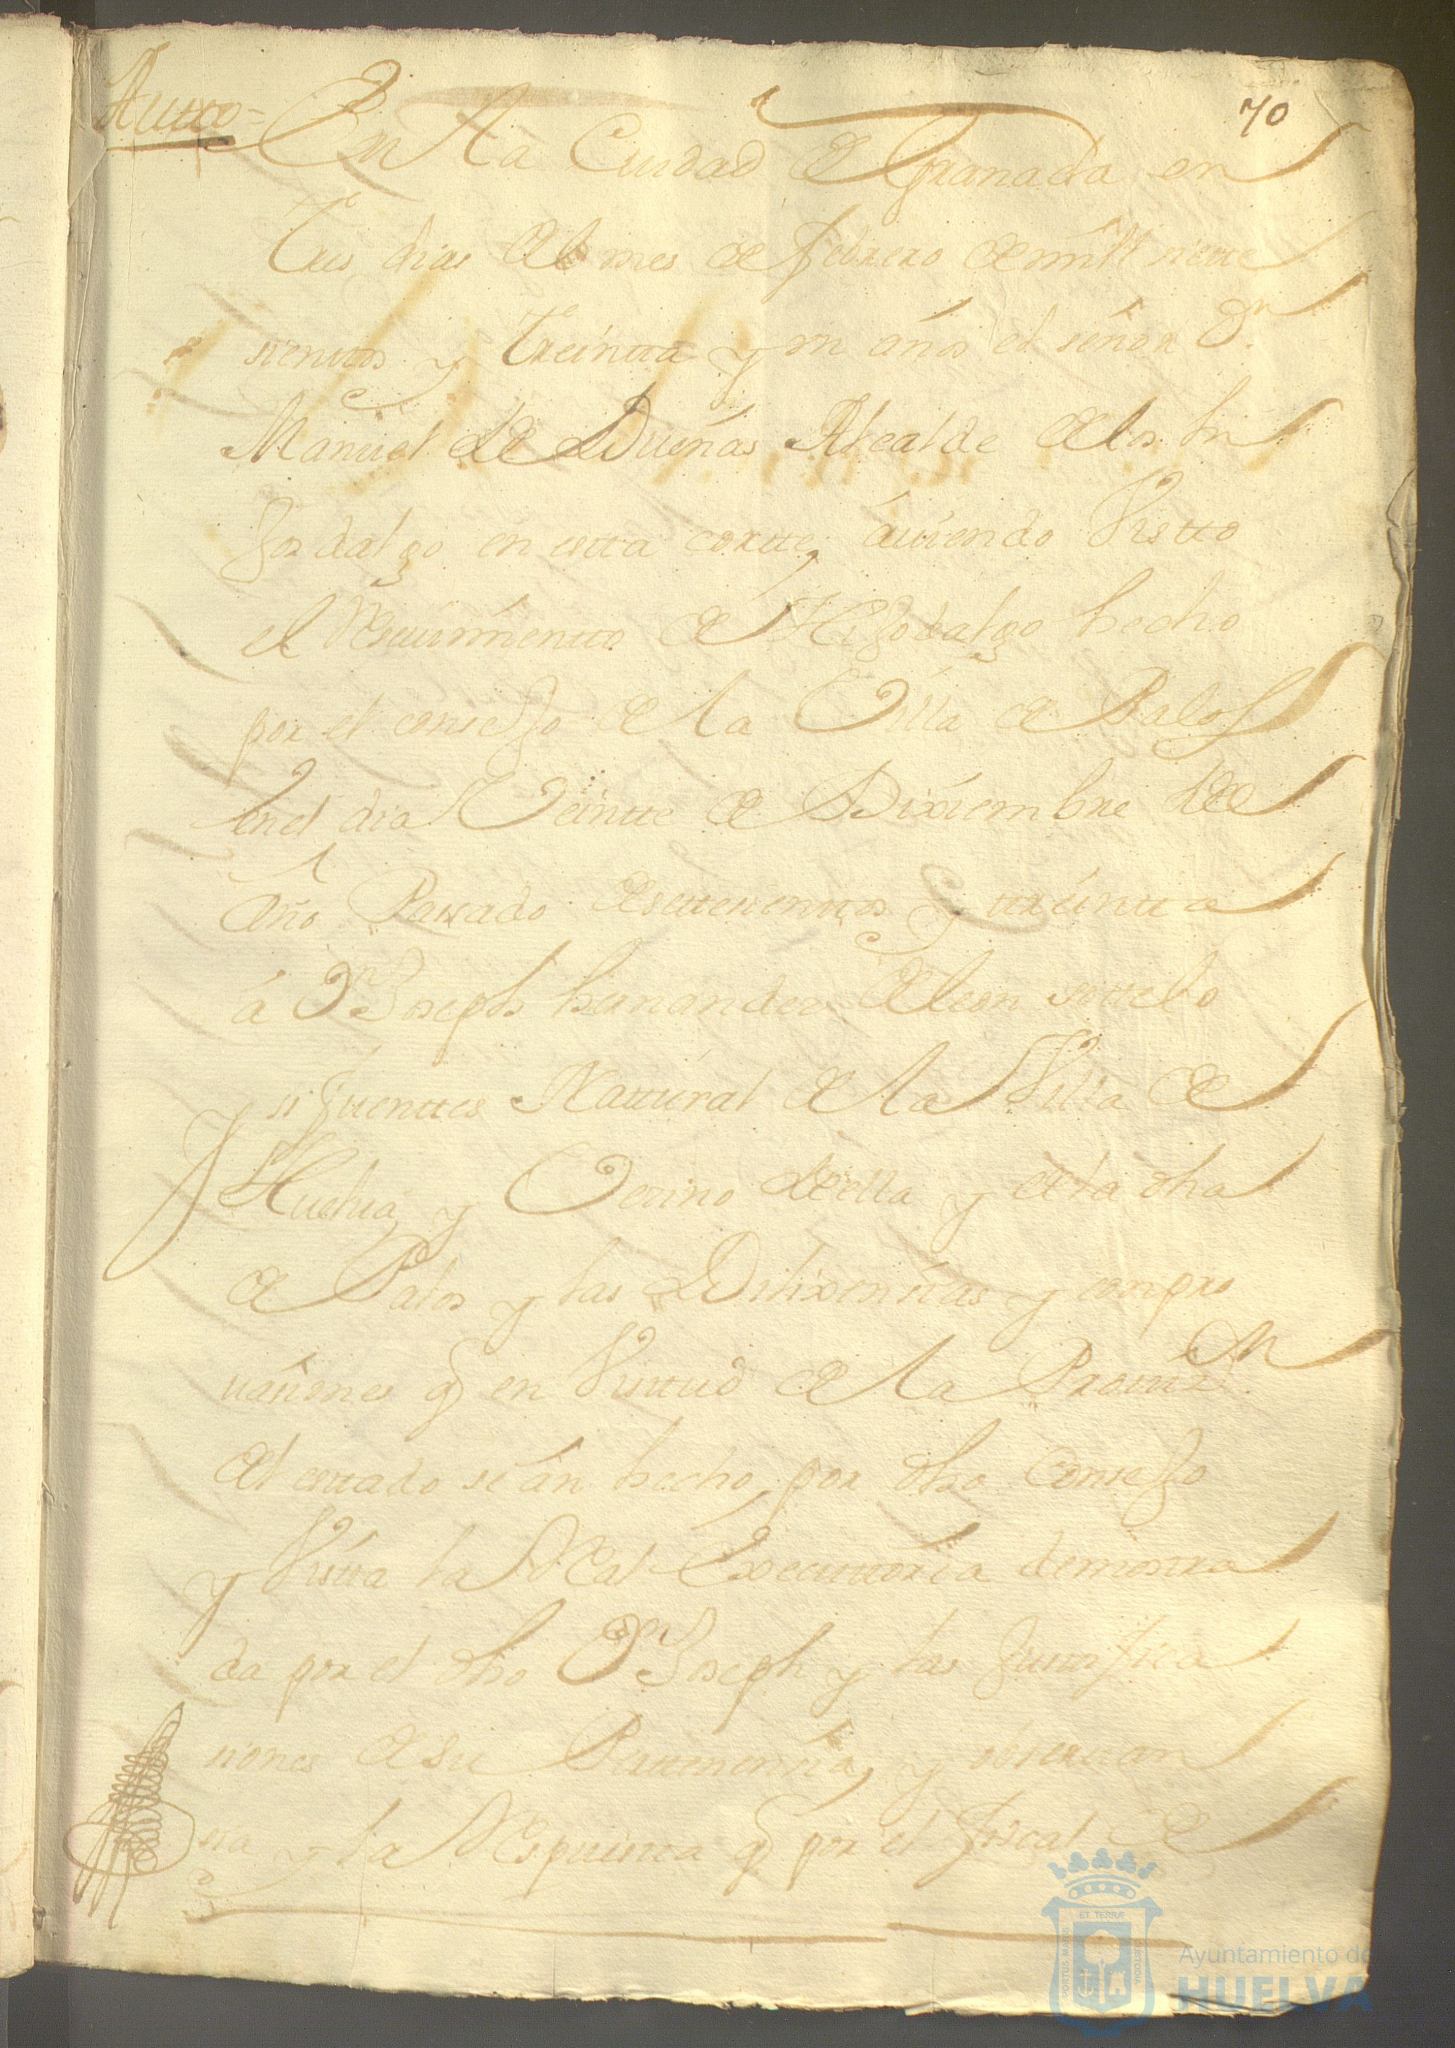 70
Autto=
En La Ciudad de Granada en
Tres dias del mes de febrero de mill siette
sienttos y Treintta y un años el señor Dn
Manuel de Dueñas Alcalde de los hi
Josdalgo en estta cortte, auiendo Vistto
el Resiuimientto de Hijodalgo hecho
por el consejo de la Villa de Palos
en el dia Veintte de Diziembre del
Año Passado de settesienttos y treintta
á Dn Joseph hernandez de leon sottelo
y sifuenttes Natturàl de la Villa de
Huelua, y Vecino de ella y de la dha
de Palos y las Dilixensias y compro
uasiones q en Virttud de la Prouiz.on
del esttado se àn hecho, por dho Consejo
y Vistta la Real Executtoria demosttra
da por el dho Dn Joseph y las Justifica
siones de su Perttenensia, y obseruan
sia y la Respuestta q por el fiscal de
Ayuntamiento de
HUELVA